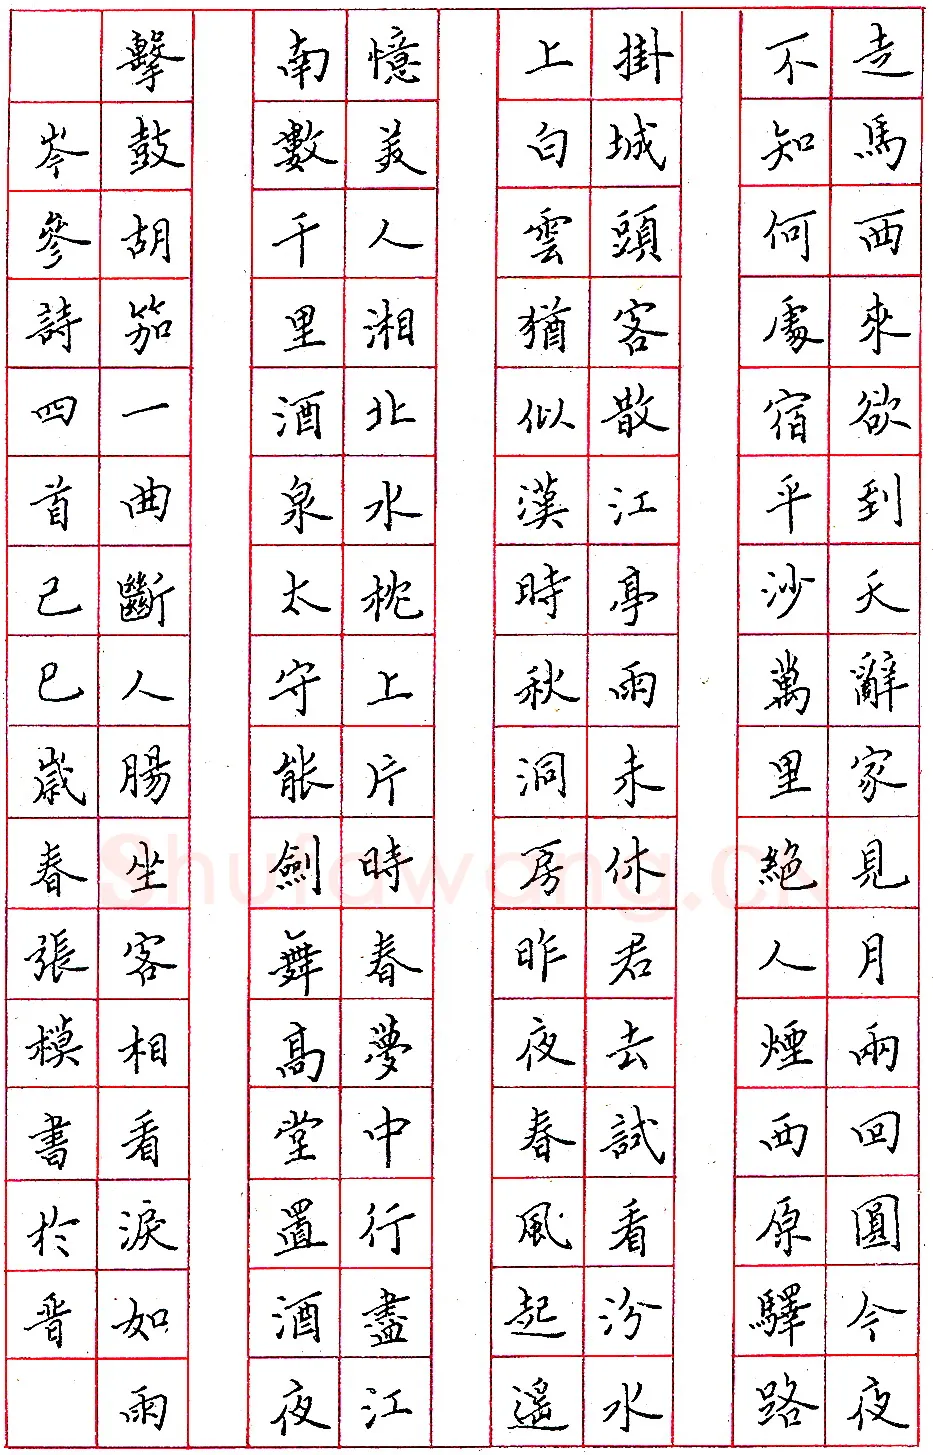 走馬西來欲到天辭家見月兩回圓今夜
不知何處宿平沙萬里絕人煙西原驛路
掛城頭客散江亭雨未休君去試看汾水
上白雲猶似漢時秋洞房昨夜春風起遥
憶美人湘北水枕上片時春夢中行盡江
南數千里酒泉太守能劍舞高堂置酒夜
擊鼓胡笳一曲斷人腸坐客相看淚如雨
岑參詩四首己巳歲春張模書於晋
Shufawang.CN